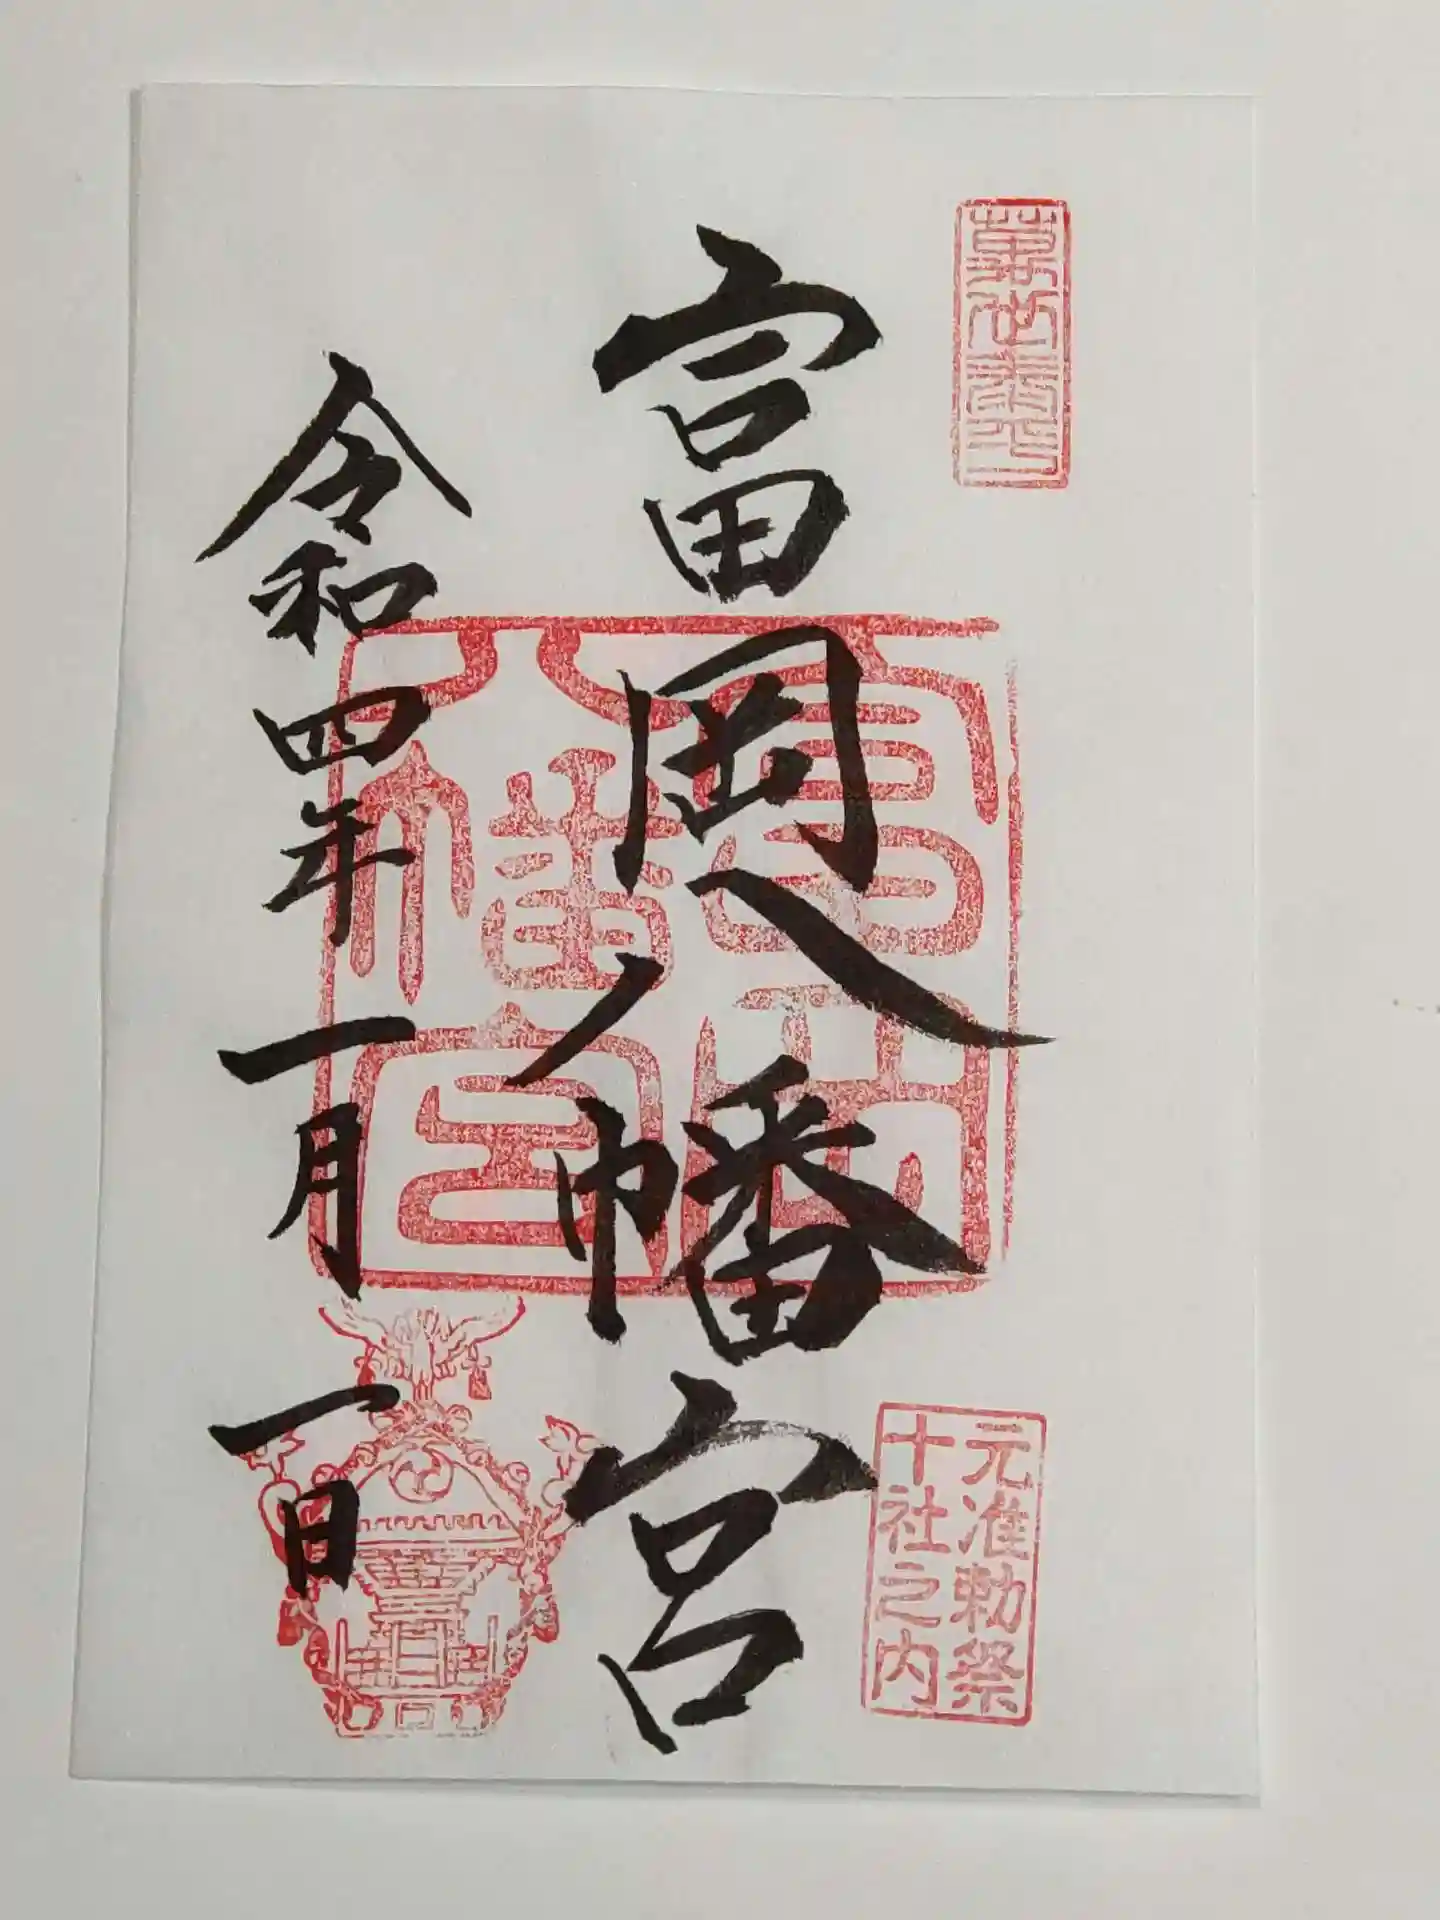 富岡八幡宮
元准勅祭
十社之内
富岡
八幡宮
令和四年一月一日